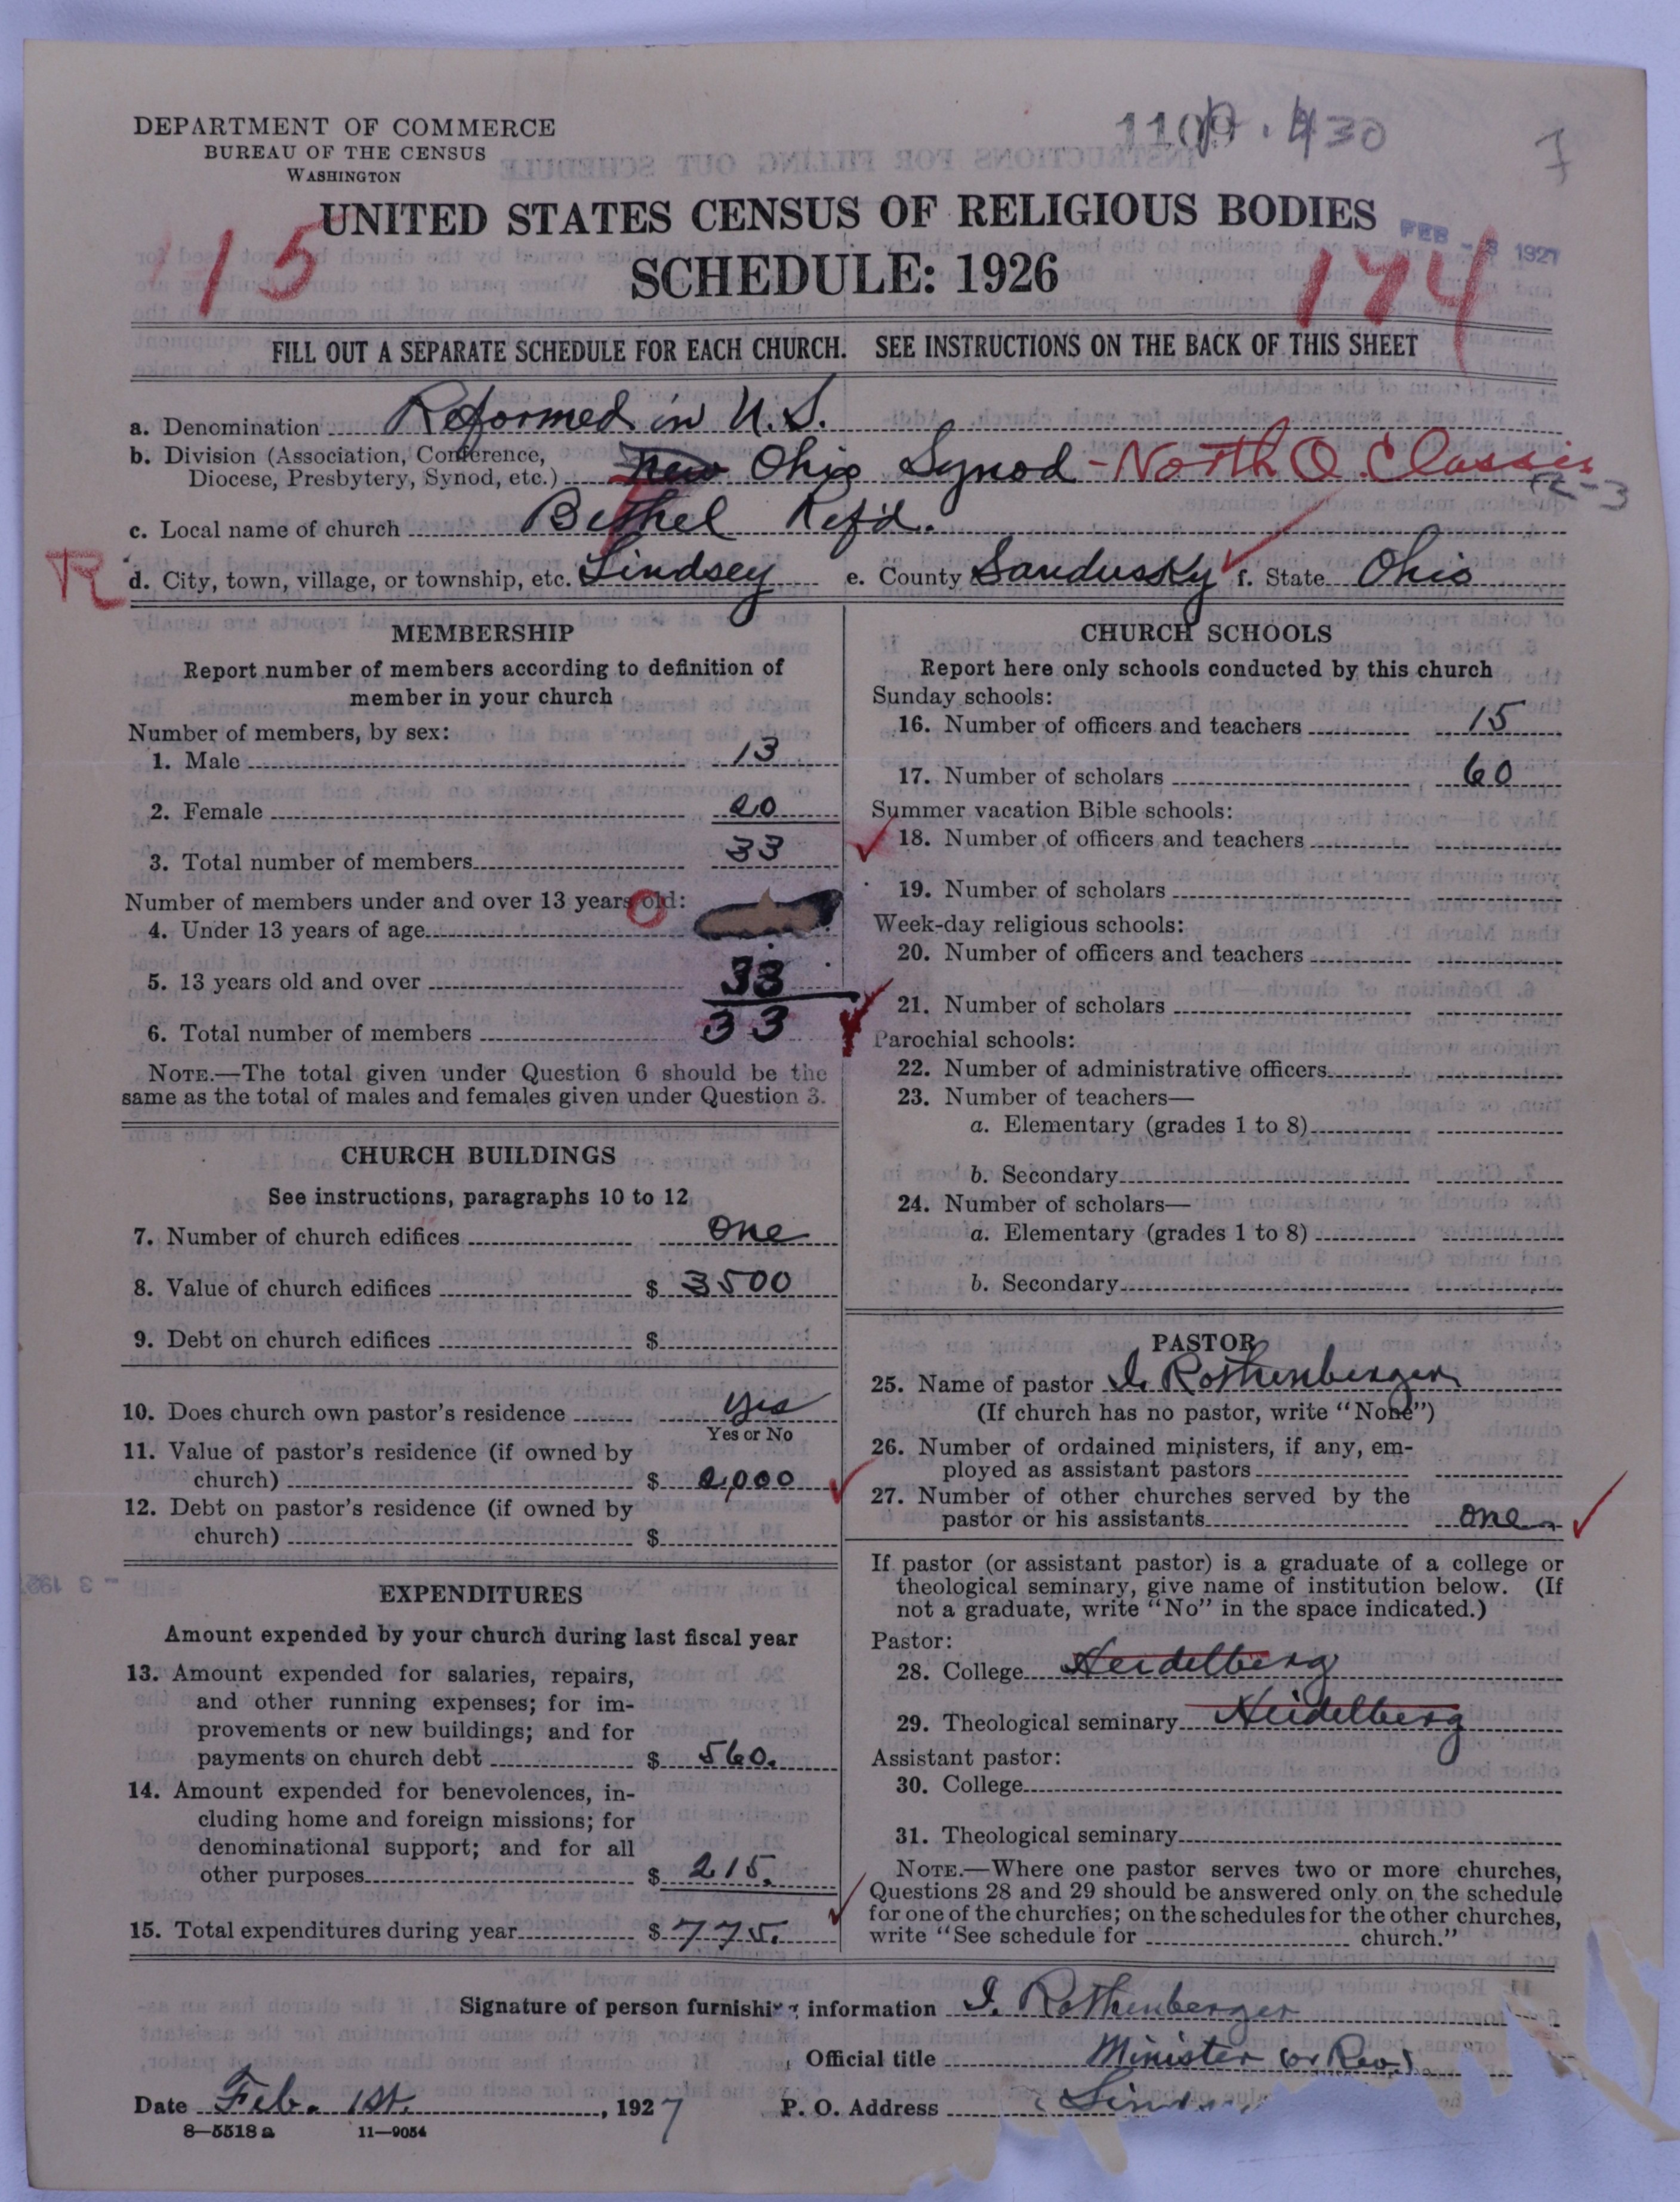 DEPARTMENT OF COMMERCE
BUREAU OF THE CENSUS
WASHINGTON
UNITED STATES CENSUS OF RELIGIOUS BODIES
FEB - 3 1927
15
SCHEDULE: 1926
174
FILL OUT A SEPARATE SCHEDULE FOR EACH CHURCH. SEE INSTRUCTIONS ON THE BACK OF THIS SHEET
a. Denomination Reformed in U.S.
b. Division (Association, Conference,
Diocese, Presbytery, Synod, etc.) New Ohio Synod - North O. Classis
c. Local name of church Bethel Ref'd.
R
d. City, town, village, or township, etc. Lindsey e. County Sandusky f. State Ohio
MEMBERSHIP
Report number of members according to definition of
member in your church
Number of members, by sex:
1. Male 13
2. Female 20
3. Total number of members 33
Number of members under and over 13 years old:
4. Under 13 years of age
5. 13 years old and over 33
6. Total number of members 33
NOTE.—The total given under Question 6 should be the
same as the total of males and females given under Question 3.
CHURCH BUILDINGS
See instructions, paragraphs 10 to 12
7. Number of church edifices one
8. Value of church edifices $ 3500
9. Debt on church edifices $
10. Does church own pastor's residence yes
Yes or No
11. Value of pastor's residence (if owned by
church) $ 2,000
12. Debt on pastor's residence (if owned by
church) $
EXPENDITURES
Amount expended by your church during last fiscal year
13. Amount expended for salaries, repairs,
and other running expenses; for im-
provements or new buildings; and for
payments on church debt $ 560.
14. Amount expended for benevolences, in-
cluding home and foreign missions; for
denominational support; and for all
other purposes $ 215.
15. Total expenditures during year $ 775.
CHURCH SCHOOLS
Report here only schools conducted by this church
Sunday schools:
16. Number of officers and teachers 15
17. Number of scholars 60
Summer vacation Bible schools:
18. Number of officers and teachers
19. Number of scholars
Week-day religious schools:
20. Number of officers and teachers
21. Number of scholars
Parochial schools:
22. Number of administrative officers
23. Number of teachers—
a. Elementary (grades 1 to 8)
b. Secondary
24. Number of scholars—
a. Elementary (grades 1 to 8)
b. Secondary
PASTOR
25. Name of pastor I. Rothenberger
(If church has no pastor, write "None")
26. Number of ordained ministers, if any, em-
ployed as assistant pastors
27. Number of other churches served by the
pastor or his assistants one
If pastor (or assistant pastor) is a graduate of a college or
theological seminary, give name of institution below. (If
not a graduate, write "No" in the space indicated.)
Pastor:
28. College Heidelberg
29. Theological seminary Heidelberg
Assistant pastor:
30. College
31. Theological seminary
NOTE.—Where one pastor serves two or more churches,
Questions 28 and 29 should be answered only on the schedule
for one of the churches; on the schedules for the other churches,
write "See schedule for church."
Signature of person furnishing information I. Rothenberger
Official title Minister (or Rev.)
Date Feb. 1st. , 1927 P. O. Address
8—5518a 11—9054